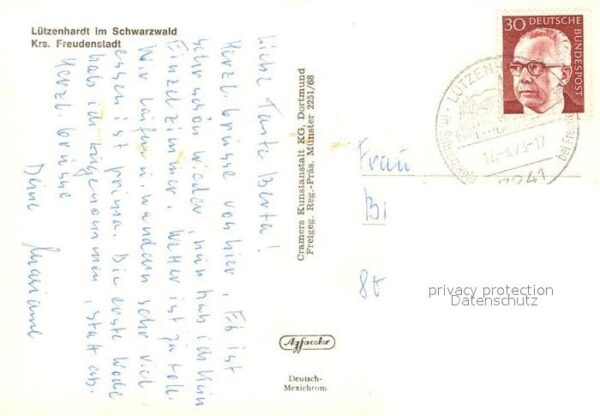 Lützenhardt im Schwarzwald
Krs. Freudenstadt
Liebe Tante Berta!
Herzl. Grüsse von hier, Es ist
sehr schön wieder nun hab ich kein
Einzelzimmer. Wetter ist zu toll.
Wir laufen u. wandern sehr viel
essen ist prima. Die erste Woche
hab ich zugenommen, statt ab.
Herzl. Grüsse
Deine Marianne
Cramers Kunstanstalt KG, Dortmund
Freigeg. Reg.-Präs. Münster 2251/68
Agfacolor
Deutsch-
Mexichrom
30 DEUTSCHE
BUNDESPOST
7241
Frau
Bi
80
privacy protection
Datenschutz